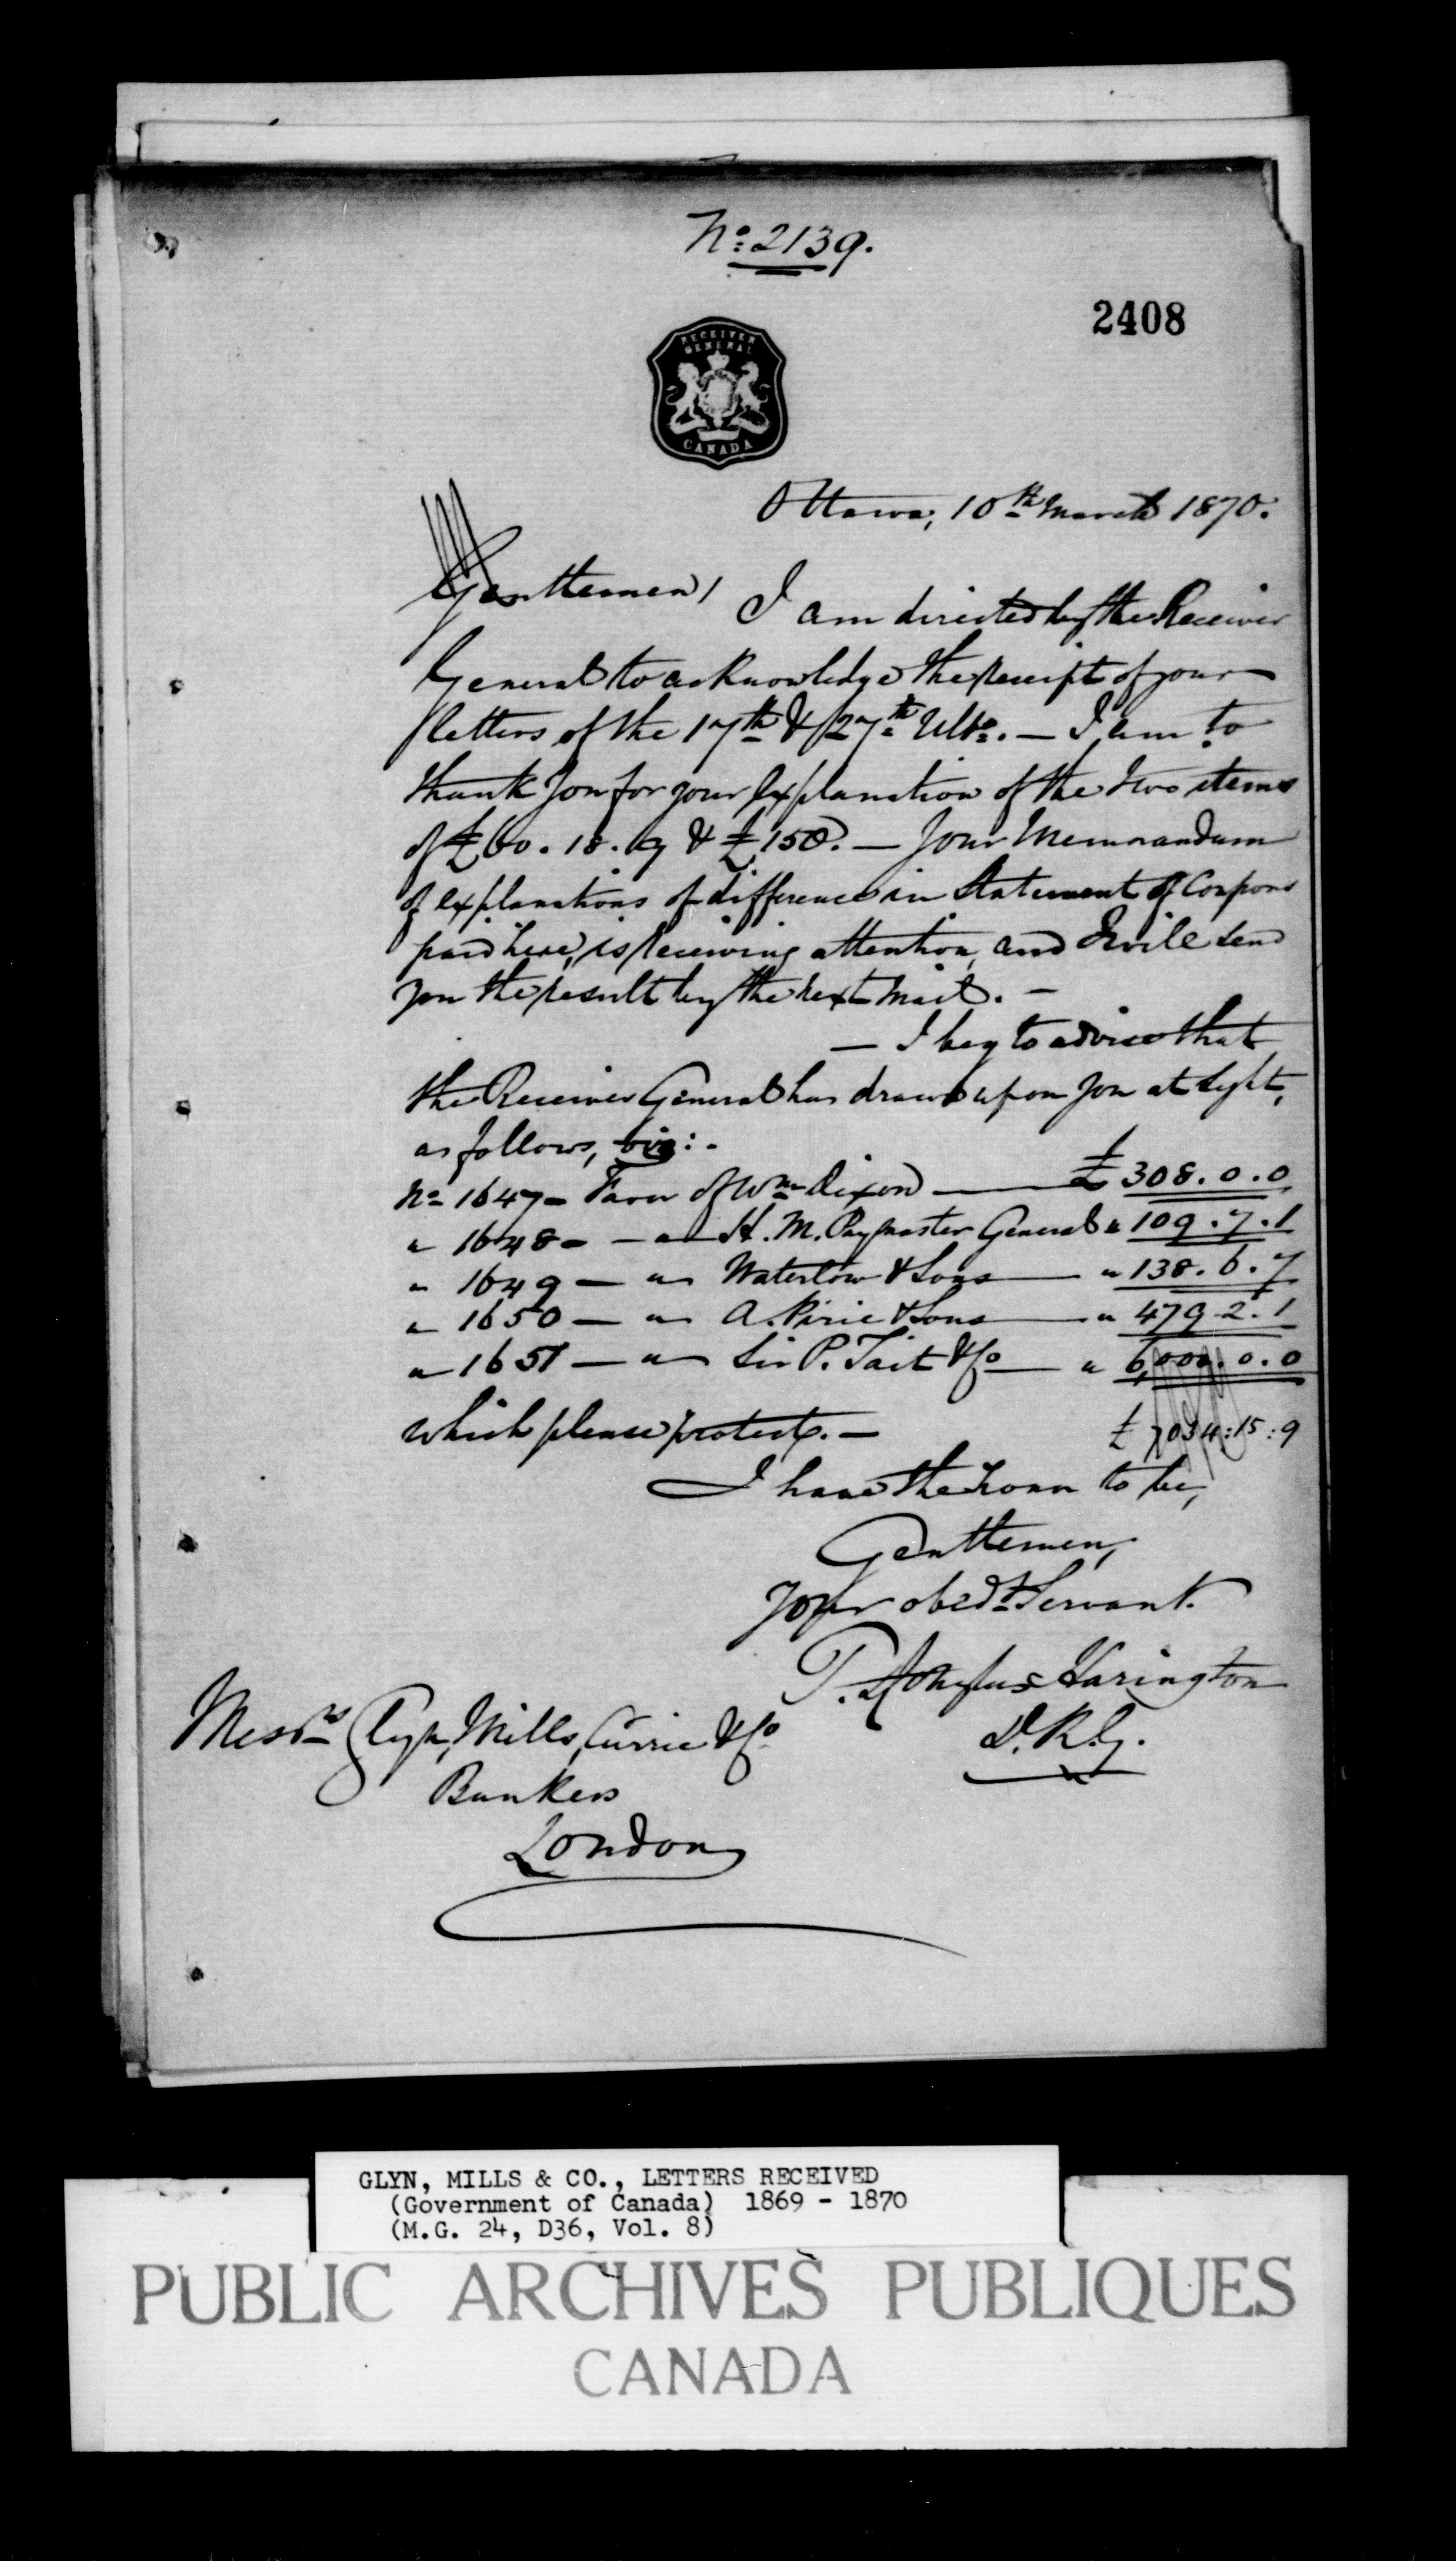 No. 2139.
2408
RECEIVER
GENERAL
CANADA
Ottawa, 10th March 1870.
Gentlemen,
I am directed by the Receiver
General to acknowledge the receipt of your
letters of the 17th & 27th Ulto. — I am to
thank you for your explanation of the two items
of £60. 18. 9 & £150. — Your Memorandum
of explanations of difference in Statement of Coupons
paid here, is receiving attention, and I will send
you the result by the next mail. —
— I beg to advise that
the Receiver General has drawn upon you at sight,
as follows, viz: -
No 1647 - Favor of Wm Dixon — £ 308. 0. 0
" 1648 - — " H. M. Paymaster General " 109. 7. 1
" 1649 — " Waterlow & Sons — " 138. 6. 7
" 1650 — " A. Pirie & Sons — " 479. 2. 1
" 1651 — " Sir P. Tait & Co — " 6,000. 0. 0
which please protect. —
£ 7034:15:9
I have the honor to be,
Gentlemen,
Your obedt Servant.
T. Harington
D. R. G.
Messrs Glyn, Mills, Currie & Co
Bankers
London
GLYN, MILLS & CO., LETTERS RECEIVED
(Government of Canada) 1869 - 1870
(M.G. 24, D36, Vol. 8)
PUBLIC ARCHIVES PUBLIQUES
CANADA